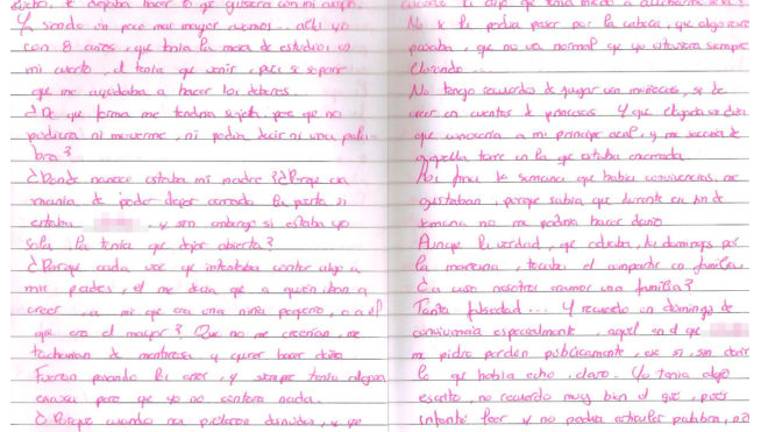 dicho, le dejaba hacer lo que quisiera con mi cuerpo.
Y siendo un poco mas mayor eramos... allí yo
con 8 años, que tenia la mesa de estudios en
mi cuarto, el tenia que venir, pues se supone
que me ayudaba a hacer los deberes.
¿De que forma me tendria sujeta, para que no
pudiera ni moverme, ni podia decir ni una pala-
bra?
¿Donde narices estaba mi madre? ¿Porque esa
mania de poder dejar cerrada la puerta si
estaba , y sin embargo si estaba yo
sola, la tenia que dejar abierta?
¿Porque cada vez que intentaba contar algo a
mis padres, el me decia que a quien iban a
creer, a mi que era una niña pequeña, o a el
que era el mayor? Que no me creerian, me
tacharian de mentirosa y querer hacer daño
Fueron pasando los años, y siempre tenia alguna
excusa para que yo no contara nada.
¿Porque cuando nos pillaron desnudos, y yo
No se le podia pasar por la cabeza, que algo
pasaba, que no era normal que yo estuviera siempre
llorando.
No tengo recuerdos de jugar con muñecas, si de
creer en cuentos de princesas. Y que llegaria un dia
que conoceria a mi principe azul, y me sacaria de
aquella torre en la que estaba encerrada.
Los fines de semana que habia convivencias, me
gustaban, porque sabia que durante un fin de
semana no me podria hacer daño
Aunque la verdad, que odiaba, los domingos por
la mañana, tocaba el compartir en familia
¿a caso nosotros eramos una familia?
Tanta falsedad... Y recuerdo un domingo de
convivencia especialmente, aquel en el que
me pidio perdon publicamente, eso si, sin decir
lo que habia echo, claro. Yo tenia algo
escrito, no recuerdo muy bien el que, pues
intenté leer y no podia articular palabra, no